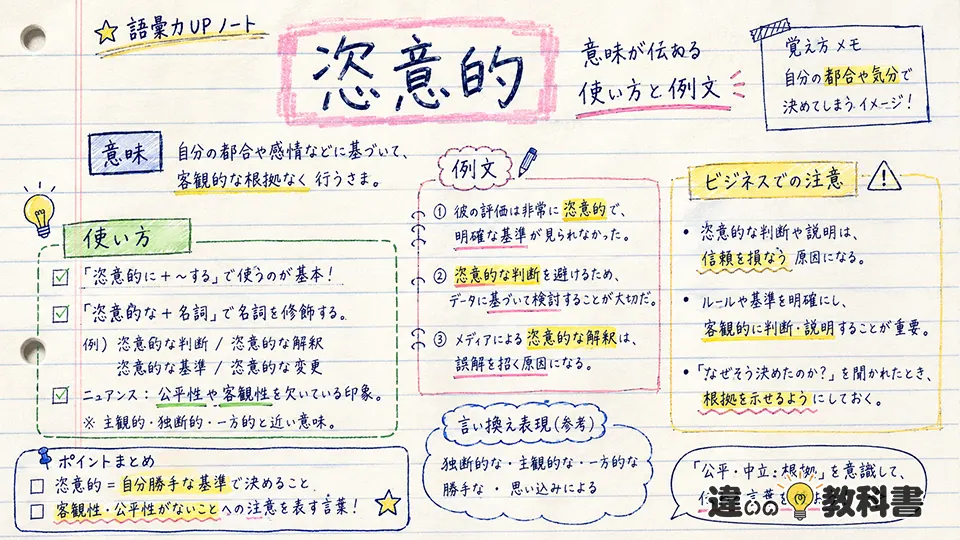 語彙力UPノート
恣意的
意味が伝わる
使い方と例文
覚え方メモ
自分の都合や気分で
決めてしまうイメージ！
意味
自分の都合や感情などに基づいて、
客観的な根拠なく 行うさま。
使い方
「恣意的に＋〜する」で使うのが基本！
「恣意的な＋名詞」で名詞を修飾する。
例）恣意的な判断 / 恣意的な解釈
恣意的な基準 / 恣意的な変更
ニュアンス：公平性や客観性を欠いている印象。
※ 主観的・独断的・一方的と近い意味。
例文
① 彼の評価は非常に恣意的で、
明確な基準が見られなかった。
② 恣意的な判断を避けるため、
データに基づいて検討することが大切だ。
③ メディアによる恣意的な解釈は、
誤解を招く原因になる。
ビジネスでの注意
• 恣意的な判断や説明は、
信頼を損なう原因になる。
• ルールや基準を明確にし、
客観的に判断・説明することが重要。
• 「なぜそう決めたのか？」を聞かれたとき、
根拠を示せるようにしておく。
ポイントまとめ
恣意的＝自分勝手な基準で決めること
客観性・公平性がないことへの注意を表す言葉！
言い換え表現（参考）
独断的な・主観的な・一方的な
勝手な ・ 思い込みによる
「公平・中立・根拠」を意識して、
言葉を
違いの教科書